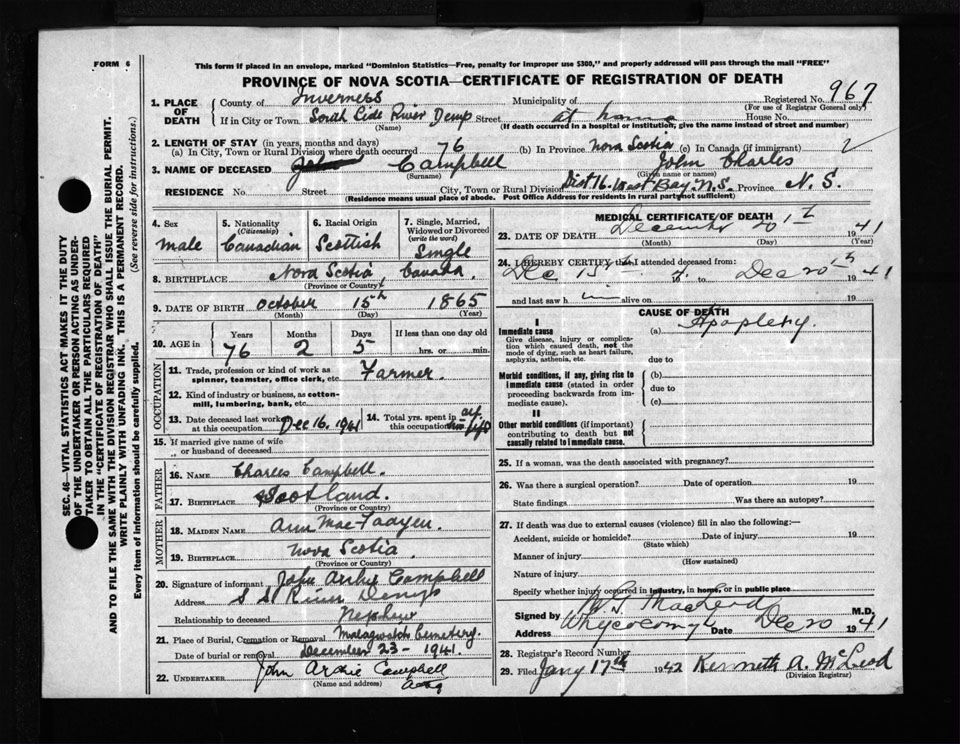 FORM 6
This form if placed in an envelope, marked "Dominion Statistics—Free, penalty for improper use $300," and properly addressed will pass through the mail "FREE"
PROVINCE OF NOVA SCOTIA—CERTIFICATE OF REGISTRATION OF DEATH
1. PLACE OF DEATH
County of Inverness Municipality of Registered No. 967
(For use of Registrar General only)
If in City or Town South Side River Denys Street at home House No.
(Name) (If death occurred in a hospital or institution, give the name instead of street and number)
2. LENGTH OF STAY (in years, months and days)
(a) In City, Town or Rural Division where death occurred 76 (b) In Province Nova Scotia (c) In Canada (if immigrant)
3. NAME OF DECEASED Campbell John Charles
(Surname) (Given name or names)
RESIDENCE No. Street City, Town or Rural Division Dist 16. West Bay N.S. Province N.S.
(Residence means usual place of abode. Post Office Address for residents in rural parts not sufficient)
4. Sex
male
5. Nationality (Citizenship)
Canadian
6. Racial Origin
Scottish
7. Single, Married, Widowed or Divorced (write the word)
Single
8. BIRTHPLACE Nova Scotia, Canada.
(Province or Country)
9. DATE OF BIRTH October 15th 1865
(Month) (Day) (Year)
10. AGE in
Years Months Days If less than one day old
76 2 5 hrs. or min.
OCCUPATION
11. Trade, profession or kind of work as spinner, teamster, office clerk, etc. Farmer.
12. Kind of industry or business, as cotton-mill, lumbering, bank, etc.
13. Date deceased last worked at this occupation Dec 16, 1941
14. Total yrs. spent in this occupation all his life
15. If married give name of wife or husband of deceased
FATHER
16. NAME Charles Campbell.
17. BIRTHPLACE Scotland.
(Province or Country)
MOTHER
18. MAIDEN NAME Ann MacFadyen
19. BIRTHPLACE Nova Scotia
(Province or Country)
20. Signature of informant John Archie Campbell
Address S S River Denys
Relationship to deceased Nephew
21. Place of Burial, Cremation or Removal Malagwatch Cemetery.
Date of burial or removal December 23 - 1941.
22. UNDERTAKER John Archie Campbell
(Name and address)
MEDICAL CERTIFICATE OF DEATH
23. DATE OF DEATH December 20th 1941
(Month) (Day) (Year)
24. I HEREBY CERTIFY that I attended deceased from:
Dec 15th to Dec 20th 1941
and last saw him alive on 19
CAUSE OF DEATH
I
Immediate cause
Give disease, injury or complication which caused death, not the mode of dying, such as heart failure, asphyxia, asthenia, etc.
(a) Apoplexy.
due to
Morbid conditions, if any, giving rise to immediate cause (stated in order proceeding backwards from immediate cause).
(b)
due to
(c)
II
Other morbid conditions (if important) contributing to death but not causally related to immediate cause.
25. If a woman, was the death associated with pregnancy?
26. Was there a surgical operation? Date of operation 19
State findings Was there an autopsy?
27. If death was due to external causes (violence) fill in also the following:—
Accident, suicide or homicide? Date of injury 19
(State which)
Manner of injury
(How sustained)
Nature of injury
Specify whether injury occurred in industry, in home, or in public place
Signed by MacLeod M.D.
Address Whycocomagh Date Dec 20 1941
28. Registrar's Record Number
29. Filed Jany 17th 1942 Kenneth A. McLeod
(Division Registrar)
SEC. 46—VITAL STATISTICS ACT MAKES IT THE DUTY
OF THE UNDERTAKER OR PERSON ACTING AS UNDERTAKER TO OBTAIN ALL THE PARTICULARS REQUIRED
IN THE "CERTIFICATE OF REGISTRATION OF DEATH"
AND TO FILE THE SAME WITH THE DIVISION REGISTRAR WHO SHALL ISSUE THE BURIAL PERMIT.
WRITE PLAINLY WITH UNFADING INK. THIS IS A PERMANENT RECORD.
Every item of information should be carefully supplied. (See reverse side for instructions.)